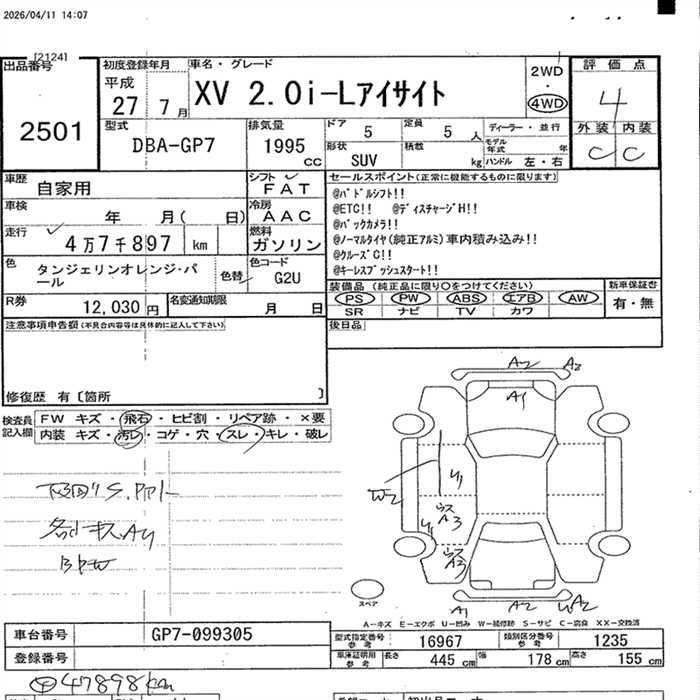 2026/04/11 14:07
[2124]
出品番号
2501
初度登録年月
平成
27 7月
車名・グレード
XV 2.0i-Lアイサイト
2WD
・
4WD
評価点
4
外装 内装
C C
型式
DBA-GP7
排気量
1995
cc
ドア
5
定員
5 人
形状
SUV
積載
kg
ディーラー・並行
モデル年式 年
ハンドル 左・右
車歴
自家用
シフト
FAT
車検
年 月( 日)
冷房
AAC
走行
4万7千897 km
燃料
ガソリン
色
タンジェリンオレンジ・パール
色替
色コード
G2U
R券
12,030 円
名変通知期限
月 日
セールスポイント(正常に機能するものに限ります)
@パドルシフト!!
@ETC!! @ディスチャージH!!
@バックカメラ!!
@ノーマルタイヤ(純正アルミ)車内積み込み!!
@クルーズC!!
@キーレスプッシュスタート!!
装備品(純正品に限り○をつけてください)
PS PW ABS エアB AW
SR ナビ TV カワ
新車保証書
有・無
後日品
注意事項申告欄(不具合内容等は具体的に記入して下さい)
修復歴 有〔箇所 〕
検査員記入欄
FW キズ・飛石・ヒビ割・リペア跡・×要
内装 キズ・汚レ・コゲ・穴・スレ・キレ・破レ
A2 A2
A1
W2
A3
A3
A1 A2 WA2
スペア
A-キズ E-エクボ U-凹み W-補修跡 S-サビ C-腐食 XX-交換済
車台番号
GP7-099305
登録番号
型式指定番号
参考
16967
類別区分番号
参考
1235
車庫証明用
参考
長さ 445 cm
幅 178 cm
高さ 155 cm
47898km